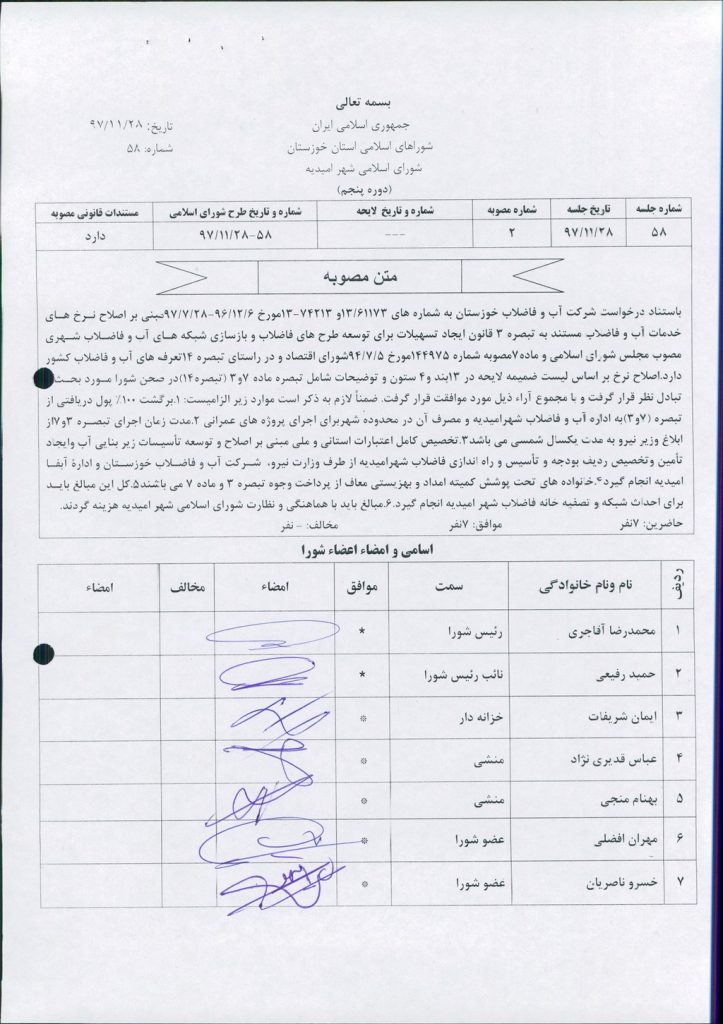 بسمه تعالی
جمهوری اسلامی ایران
تاریخ: ۹۷/۱۱/۲۸
شوراهای اسلامی استان خوزستان
شماره: ۵۸
شورای اسلامی شهر امیدیه
(دوره پنجم)
شماره جلسه تاریخ جلسه شماره مصوبه شماره و تاریخ لایحه شماره و تاریخ طرح شورای اسلامی مستندات قانونی مصوبه
۵۸ ۹۷/۱۱/۲۸ ۲ --- ۵۸-۹۷/۱۱/۲۸ دارد
متن مصوبه
باستناد درخواست شرکت آب و فاضلاب خوزستان به شماره های ۱۳/۶۱۱۷۳و ۷۴۲۱۳-۱۳مورخ ۹۶/۱۲/۶-۹۷/۷/۲۸مبنی بر اصلاح نرخ های
خدمات آب و فاضلاب مستند به تبصره ۳ قانون ایجاد تسهیلات برای توسعه طرح های فاضلاب و بازسازی شبکه های آب و فاضلاب شهری
مصوب مجلس شورای اسلامی و ماده۷مصوبه شماره ۱۴۴۹۷۵مورخ ۹۴/۷/۵شورای اقتصاد و در راستای تبصره ۱۴تعرفه های آب و فاضلاب کشور
دارد.اصلاح نرخ بر اساس لیست ضمیمه لایحه در ۱۳بند و۴ ستون و توضیحات شامل تبصره ماده ۷و۳ (تبصره۱۴)در صحن شورا مورد بحث
تبادل نظر قرار گرفت و با مجموع آراء ذیل مورد موافقت قرار گرفت. ضمناً لازم به ذکر است موارد زیر الزامیست: ۱.برگشت ۱۰۰٪ پول دریافتی از
تبصره (۷و۳)به اداره آب و فاضلاب شهرامیدیه و مصرف آن در محدوده شهربرای اجرای پروژه های عمرانی ۲.مدت زمان اجرای تبصره ۳و۷از
ابلاغ وزیر نیرو به مدت یکسال شمسی می باشد۳.تخصیص کامل اعتبارات استانی و ملی مبنی بر اصلاح و توسعه تأسیسات زیر بنایی آب وایجاد
تأمین وتخصیص ردیف بودجه و تأسیس و راه اندازی فاضلاب شهرامیدیه از طرف وزارت نیرو، شرکت آب و فاضلاب خوزستان و ادارهٔ آبفا
امیدیه انجام گیرد۴.خانواده های تحت پوشش کمیته امداد و بهزیستی معاف از پرداخت وجوه تبصره ۳ و ماده ۷ می باشند۵.کل این مبالغ باید
برای احداث شبکه و تصفیه خانه فاضلاب شهر امیدیه انجام گیرد.۶.مبالغ باید با هماهنگی و نظارت شورای اسلامی شهر امیدیه هزینه گردند.
حاضرین: ۷نفر موافق: ۷نفر مخالف: - نفر
اسامی و امضاء اعضاء شورا
ردیف نام ونام خانوادگی سمت موافق امضاء مخالف امضاء
۱ محمدرضا آقاجری رئیس شورا *
۲ حمید رفیعی نائب رئیس شورا *
۳ ایمان شریفات خزانه دار *
۴ عباس قدیری نژاد منشی *
۵ بهنام منجی منشی *
۶ مهران افضلی عضو شورا *
۷ خسرو ناصریان عضو شورا *